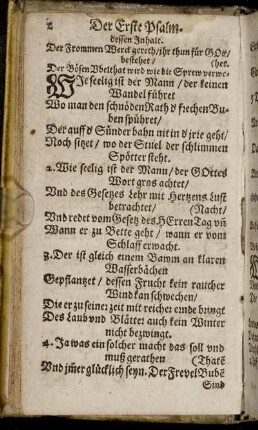 2 Der Erste Psalm.
dessen Inhalt.
Der Frommen Werck gereth/ ihr thun für GOtt/
bestehet/ (het.
Der Bösen Vbelthat wird wie die Sprew verwe-
WIe seelig ist der Mann/ der keinen
Wandel führet
Wo man den schnöden Rath d' frechen Bu-
ben spühret/
Der auff d' Sünder bahn nit in d' irre geht/
Noch sitzet/ wo der Stuel der schlimmen
Spötter steht.
2. Wie seelig ist der Mann/ der GOttes
Wort gros achtet/
Vnd des Gesetzes Lehr mit Hertzens Lust
betrachtet/ (Nacht/
Vnd redet vom Gesetz des HErren Tag uñ
Wann er zu Bette geht/ wann er vom
Schlaff erwacht.
3. Der ist gleich einem Bawm an klaren
Wasserbächen
Gepflantzet/ dessen Frucht kein rautcher
Wind kan schwechen/
Die er zu seiner zeit mit reicher ernde bringt
Des Laub vnd Blätter auch kein Winter
nicht bezwingt.
4. Ja was ein solcher macht das soll vnd
muß gerathen (Thatē
Vnd jm̄er glücklich seyn. Der Frevel Bubē
Sind